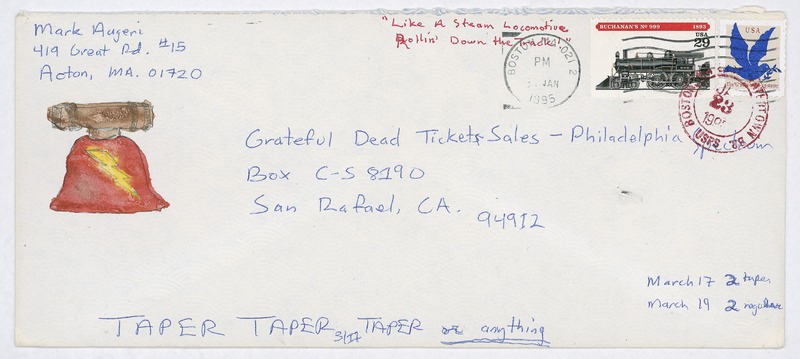 Mark Augeri
419 Great Rd. #15
Acton, MA. 01720
"Like A Steam Locomotive
Rollin' Down the Track"
BOSTON MA 0212
PM
JAN
1995
BUCHANAN'S No 999 1893
USA
29
USA
BOSTON
23
USPS
Grateful Dead Tickets Sales - Philadelphia Spectrum
Box C-S 8190
San Rafael, CA. 94912
March 17 2 taper
March 19 2 regular
TAPER TAPER 3/17 TAPER or anything